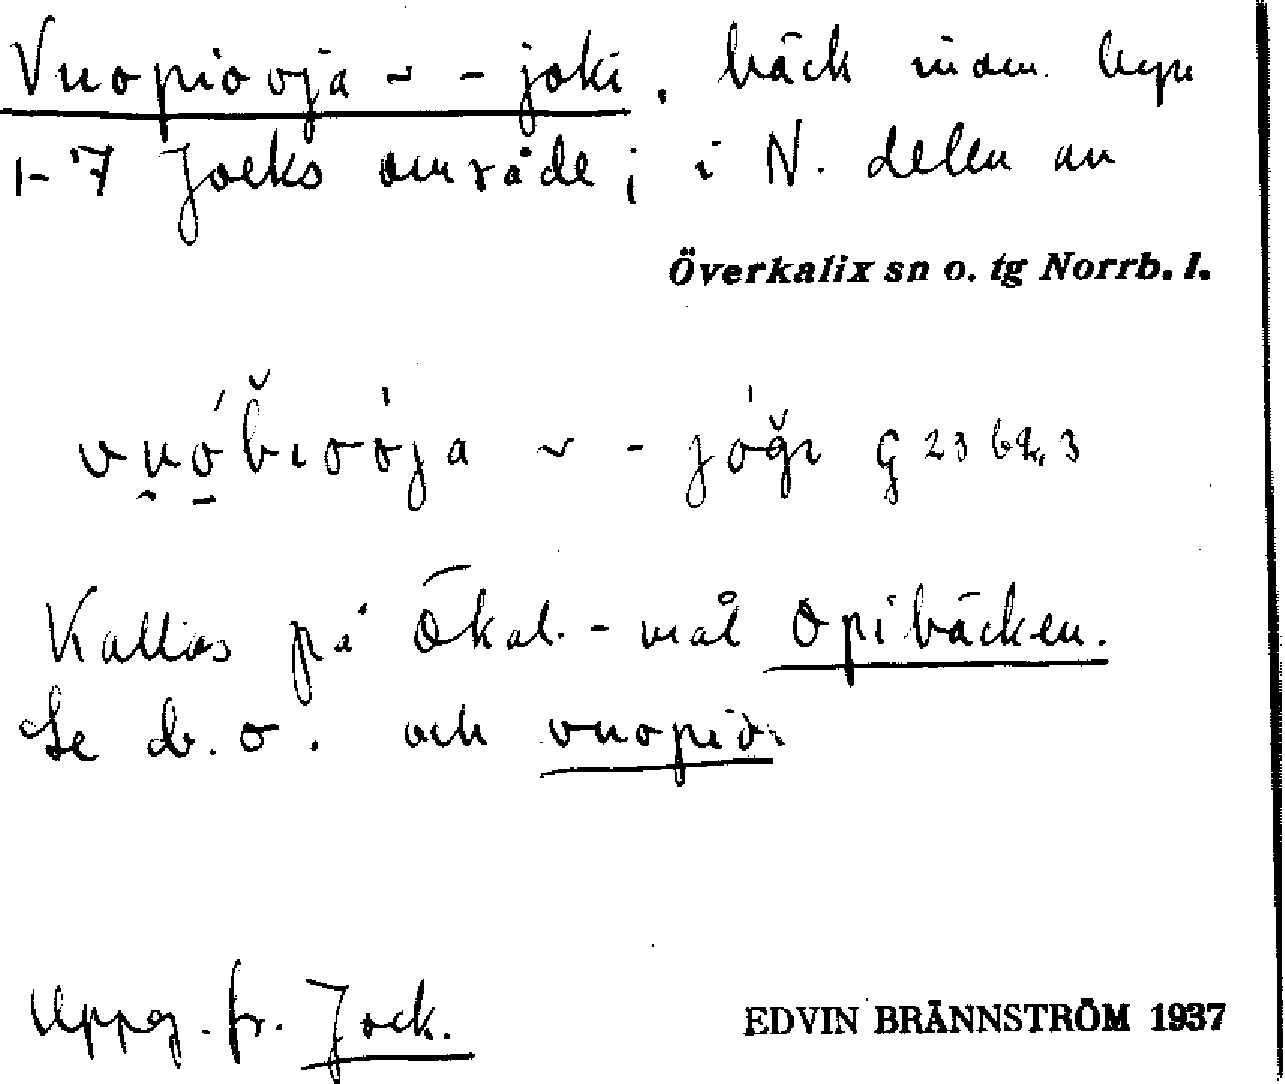 Vuopiooja ~ -joki, bäck inom
1-7 Jocks område; i N. delen av
Överkalix sn o. tg Norrb. l.
~ -
Kallas på Ökal.-mål Opibäcken.
Se d. o. och vuopio
Uppg. fr. Jock.
EDVIN BRÄNNSTRÖM 1937